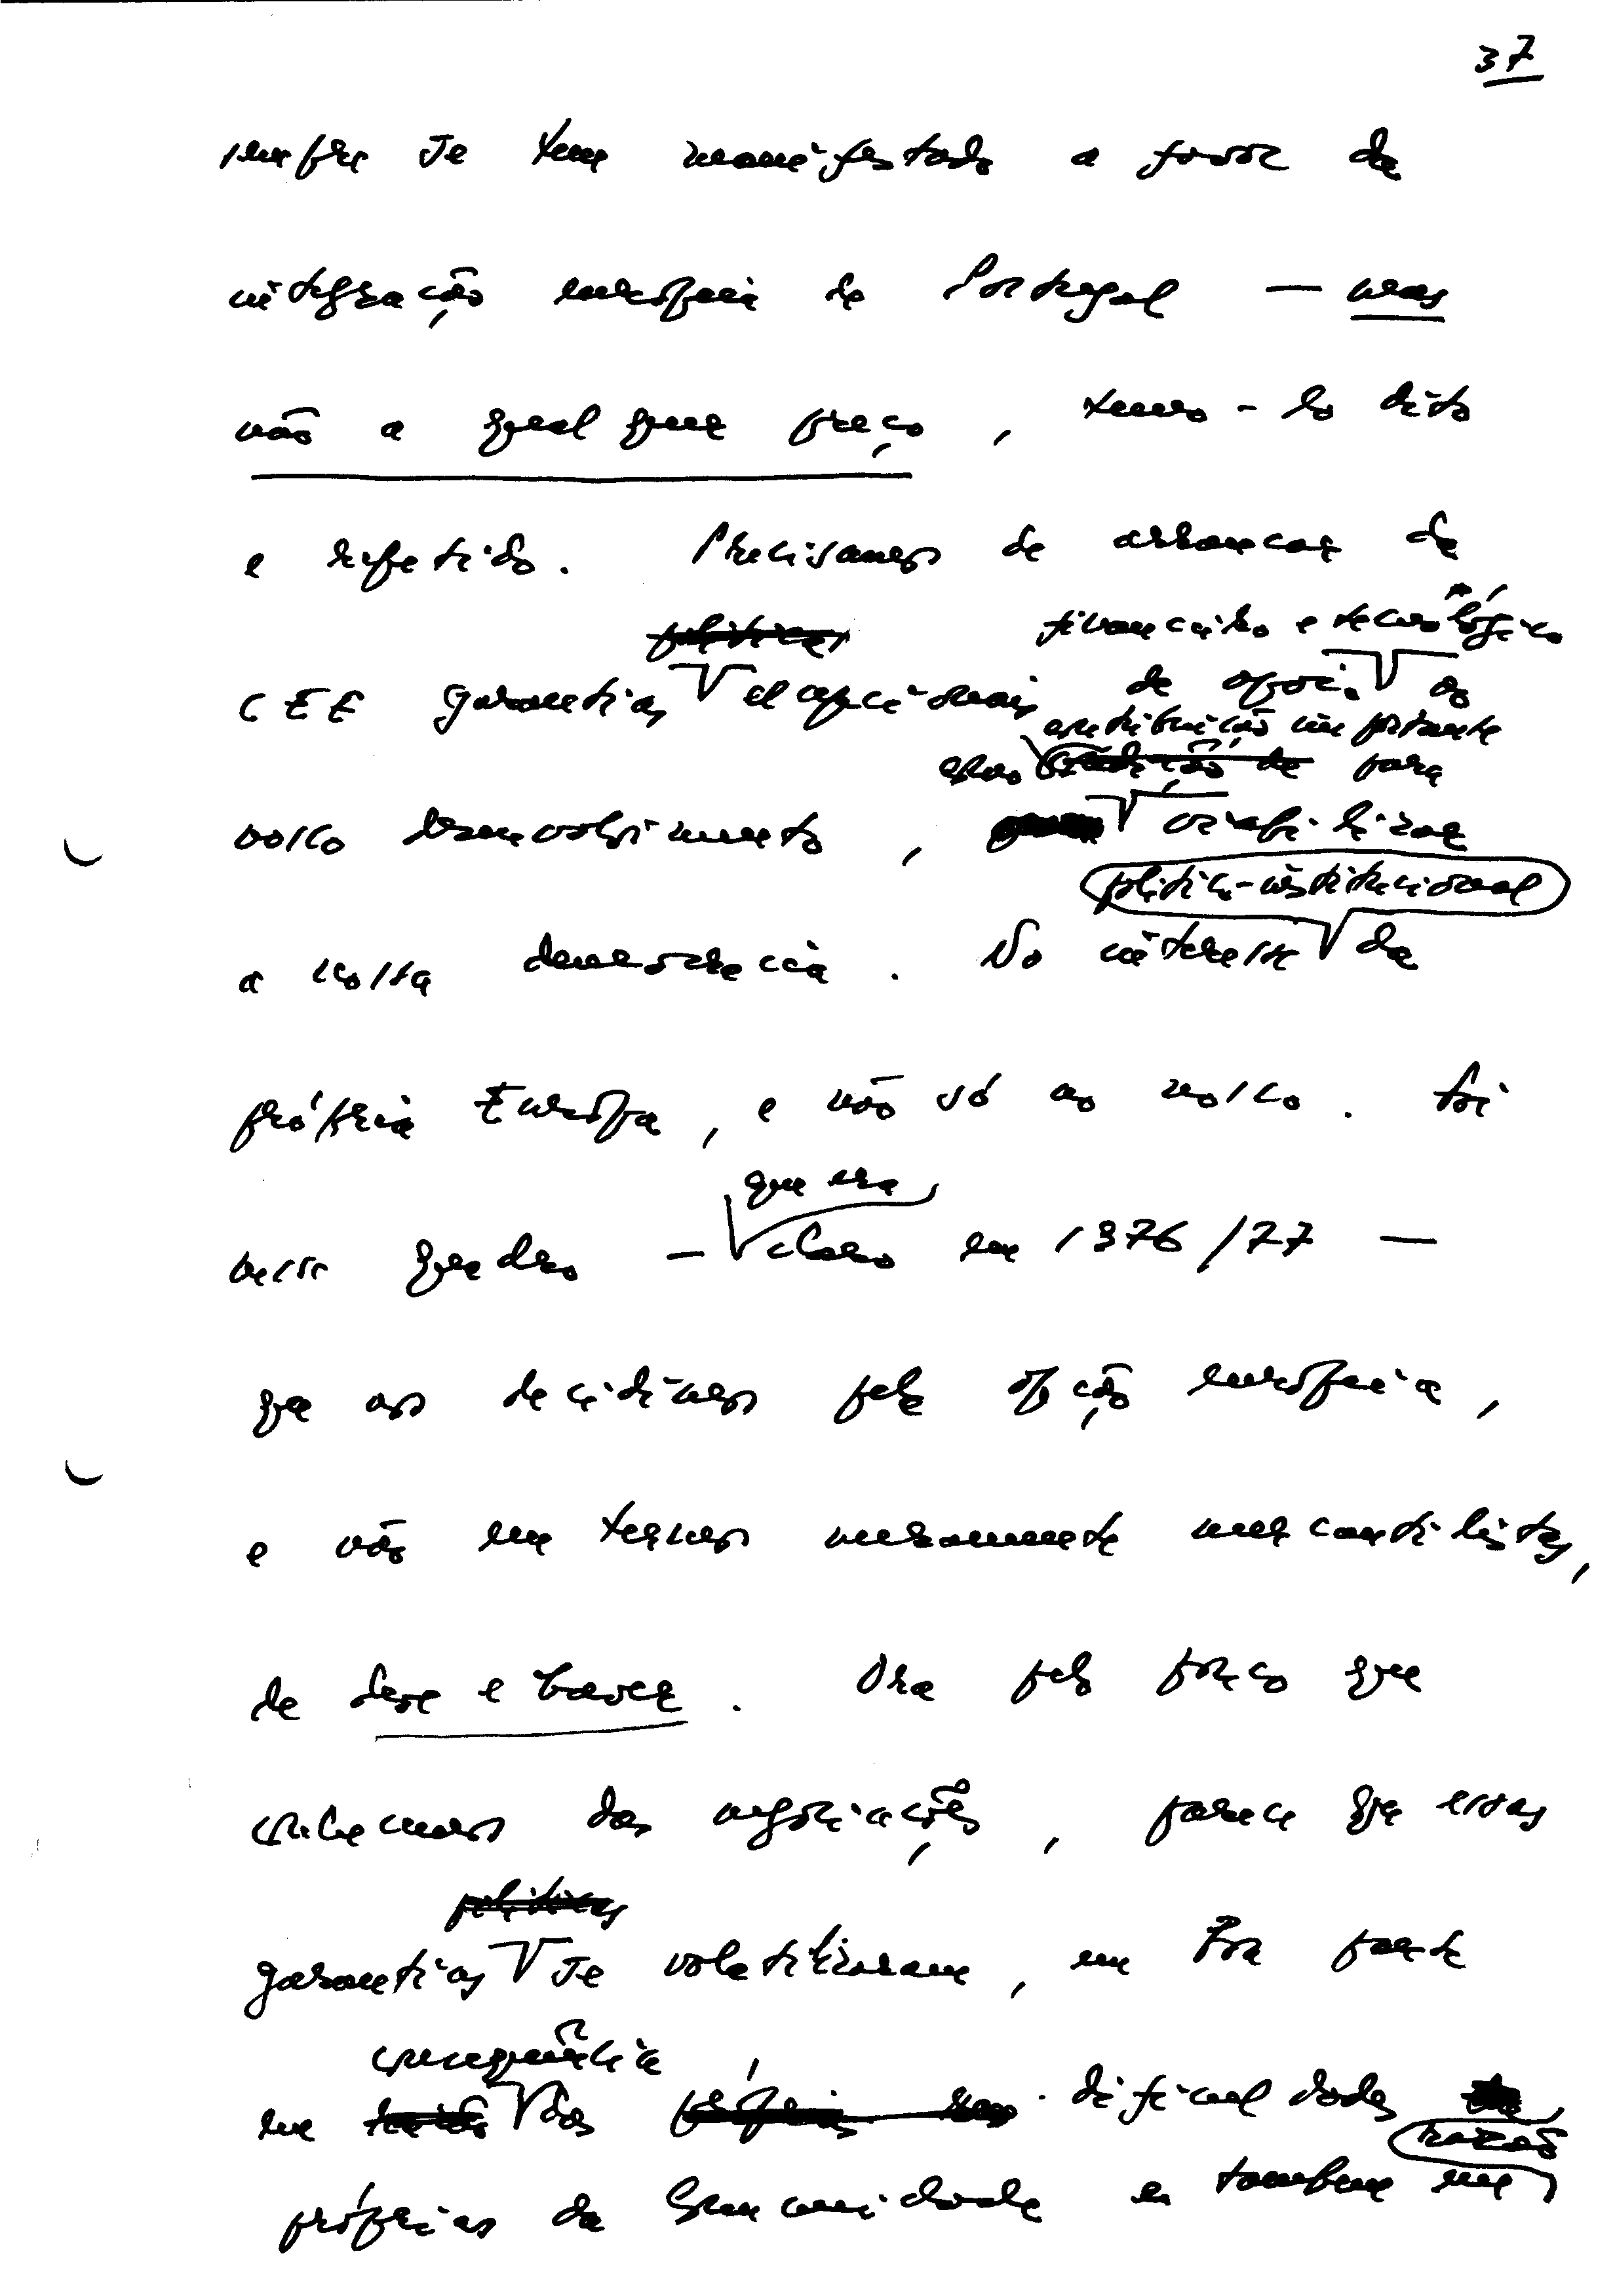 37
sempre se tem manifestado a favor da
integração europeia de Portugal — mas
não a qualquer preço, temo-lo dito
e repetido. Precisamos de arrancar da
políticas financeiro e tecnológico
CEE garantias excepcionais de apoio ao
contribuição importante
como para
nosso desenvolvimento, viabilizar
político-institucional
a nossa democracia. No interesse da
própria Europa, e não só no nosso. Foi
que era
nesse quadro — claro em 1976/77 —
que nos decidimos pela opção europeia,
e não em termos meramente mercantilistas,
de deve e haver. Ora pelo preço que
conhecemos das negociações, parece que essas
políticas
garantias se volatilizaram, em boa parte
consequência
em das dificuldades
razão
próprias da Comunidade e também em